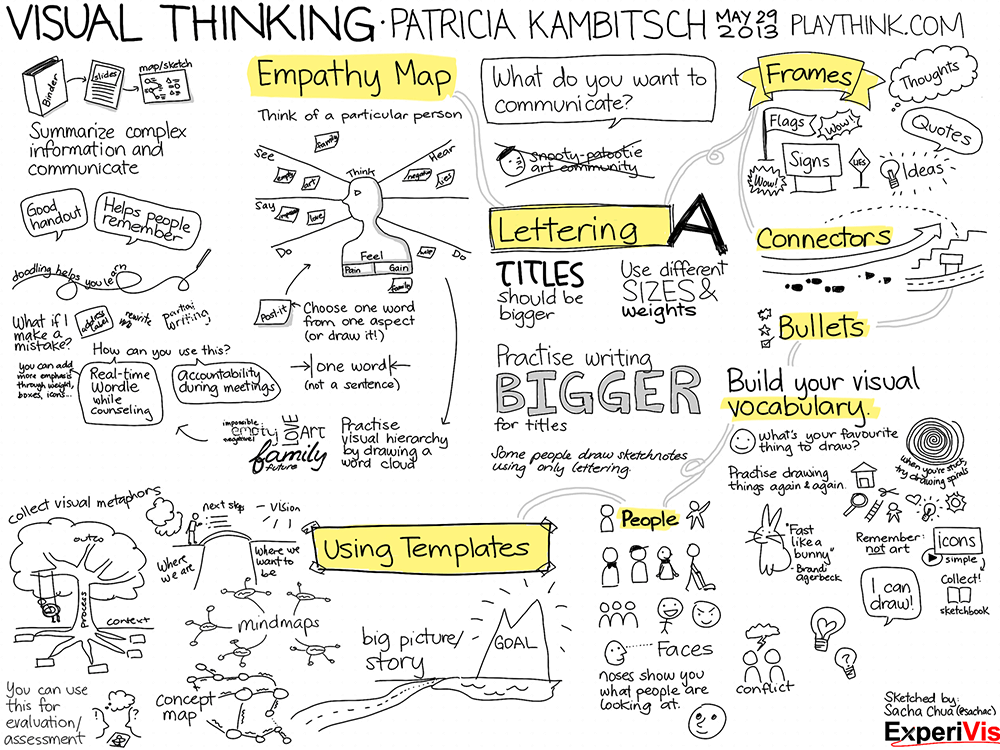 VISUAL THINKING · PATRICIA KAMBITSCH MAY 29 2013 PLAYTHINK.COM
Binder
slides
map/sketch
Summarize complex
information and
communicate
Good
handout
Helps people
remember
doodling helps you learn
What if I
make a
mistake?
address
label
rewrite
partial
writing
you can add
more emphasis
through weight,
boxes, icons...
How can you use this?
Real-time
Wordle
while
counseling
accountability
during meetings
Empathy Map
Think of a particular person
family
See
Hear
Think
empty
art
negative
lies
Say
love
Do
Do
Feel
Pain
Gain
family
Post-it
Choose one word
from one aspect
(or draw it!)
one word
(not a sentence)
impossible
negative!
empty
LOVE
Art
family
future
Practise
visual hierarchy
by drawing a
word cloud
What do you want to
communicate?
snooty-patootie
art community
Lettering A
TITLES
should be
bigger
Use different
SIZES &
weights
Practise writing
BIGGER
for titles
Some people draw sketchnotes
using only lettering.
Frames
Thoughts
Flags
Wow!
Quotes
Signs
YES
Ideas
Wow!
Connectors
Bullets
Build your visual
vocabulary.
what's your favourite
thing to draw?
when you're stuck,
try drawing spirals
Practise drawing
things again & again.
"Fast
like a
bunny"
- Brandy
agerbeck
Remember:
not art
icons
simple
Collect!
sketchbook
I can
draw!
People
Faces
noses show you
what people are
looking at.
conflict
Using Templates
collect visual metaphors
outco
process
context
next step
Vision
Where
we are
Where we
want to
be
mindmaps
big picture/
story
GOAL
concept
map
You can use
this for
evaluation/
assessment
! ?
Sketched by:
Sacha Chua (@sachac)
ExperiVis